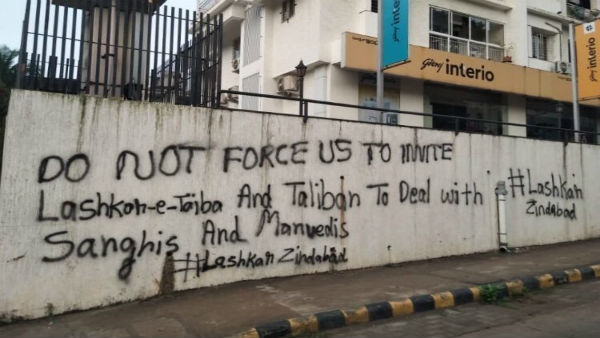 Godrej interio
interio
interio
DO NOT FORCE US TO INVITE
Lashkar-e-Taiba And Taliban To Deal with
Sanghis And Manvedis
#Lashkar Zindabad
#Lashkar
Zindabad